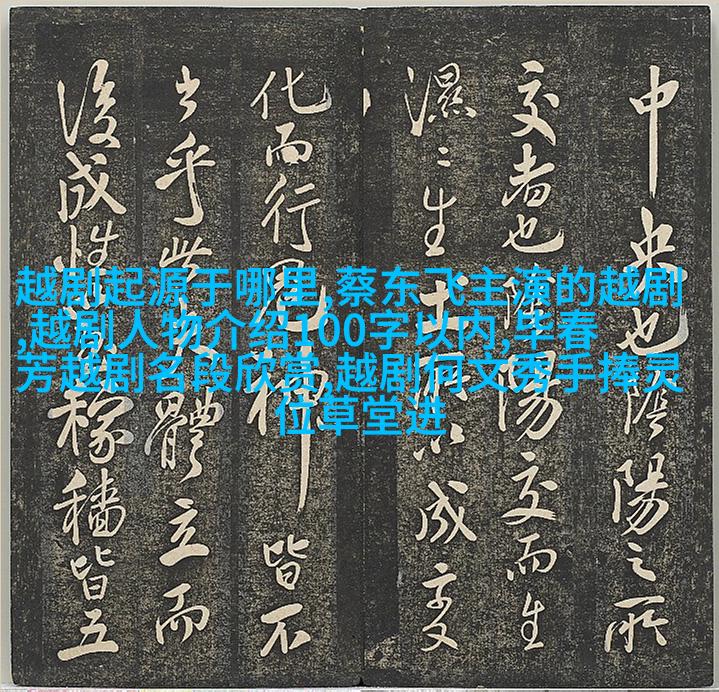 越剧起源于哪里,蔡东飞主演的越剧
,越剧人物介绍100字以内,毕春
芳越剧名段欣赏,越剧何文秀手捧灵
位草堂进
中央也陰陽之所
交者也陰陽交而生
濕〻生土成变
化而行鬼神皆不
乎此大體立而
後成性稼穡皆五